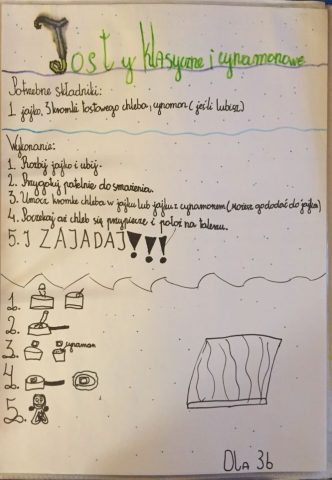 Tosty klasyczne i cynamonowe
Potrzebne składniki:
1 jajko, 3 kromki tostowego chleba, cynamon (jeśli lubisz)
Wykonanie:
1. Rozbij jajko i ubij.
2. Przygotuj patelnie do smażenia.
3. Umocz kromkę chleba w jajku lub jajku z cynamonem (Możesz go dodać do jajka)
4. Poczekaj aż chleb się przypiecze i połóż na talerzu.
5. I ZAJADAJ!!!
1.
2.
3. cynamon
4.
5.
Dla 3b